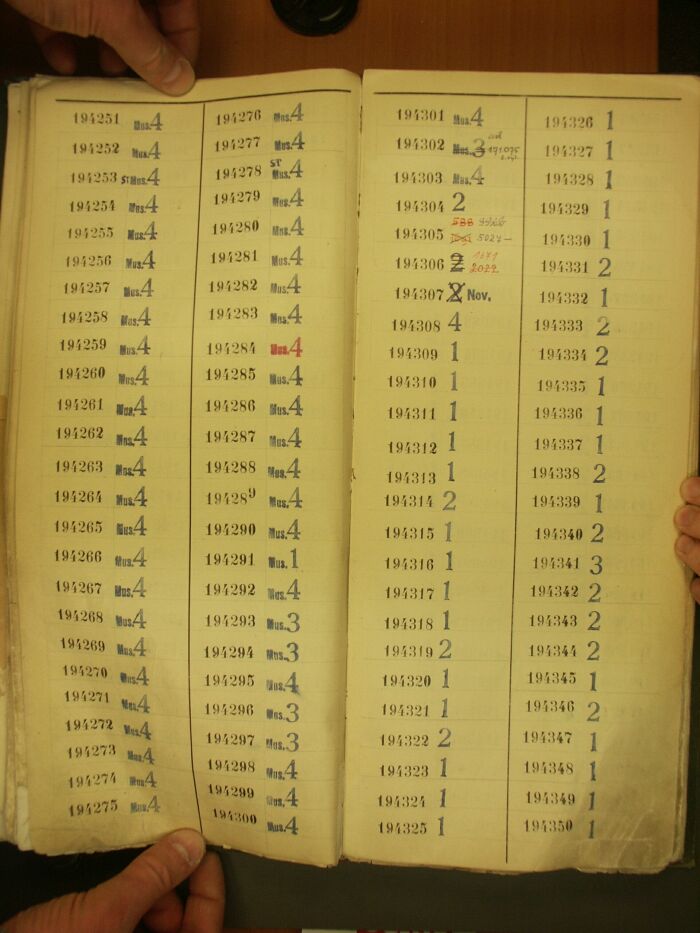 194251 Mus.4
194252 Mus.4
194253 ST Mus.4
194254 Mus.4
194255 Mus.4
194256 Mus.4
194257 Mus.4
194258 Mus.4
194259 Mus.4
194260 Mus.4
194261 Mus.4
194262 Mus.4
194263 Mus.4
194264 Mus.4
194265 Mus.4
194266 Mus.4
194267 Mus.4
194268 Mus.4
194269 Mus.4
194270 Mus.4
194271 Mus.4
194272 Mus.4
194273 Mus.4
194274 Mus.4
194275 Mus.4
194276 Mus.4
194277 Mus.4
194278 ST Mus.4
194279 Mus.4
194280 Mus.4
194281 Mus.4
194282 Mus.4
194283 Mus.4
194284 Mus.4
194285 Mus.4
194286 Mus.4
194287 Mus.4
194288 Mus.4
194289 Mus.4
194290 Mus.4
194291 Mus.1
194292 Mus.4
194293 Mus.3
194294 Mus.3
194295 Mus.4
194296 Mus.3
194297 Mus.3
194298 Mus.4
194299 Mus.4
194300 Mus.4
194301 Mus.4
194302 Mus.3 ad
194303 Mus.4
194304 2
588
194305 5027 –
194306 2 1671
2022
194307 2 Nov.
194308 4
194309 1
194310 1
194311 1
194312 1
194313 1
194314 2
194315 1
194316 1
194317 1
194318 1
194319 2
194320 1
194321 1
194322 2
194323 1
194324 1
194325 1
194326 1
194327 1
194328 1
194329 1
194330 1
194331 2
194332 1
194333 2
194334 2
194335 1
194336 1
194337 1
194338 2
194339 1
194340 2
194341 3
194342 2
194343 2
194344 2
194345 1
194346 2
194347 1
194348 1
194349 1
194350 1